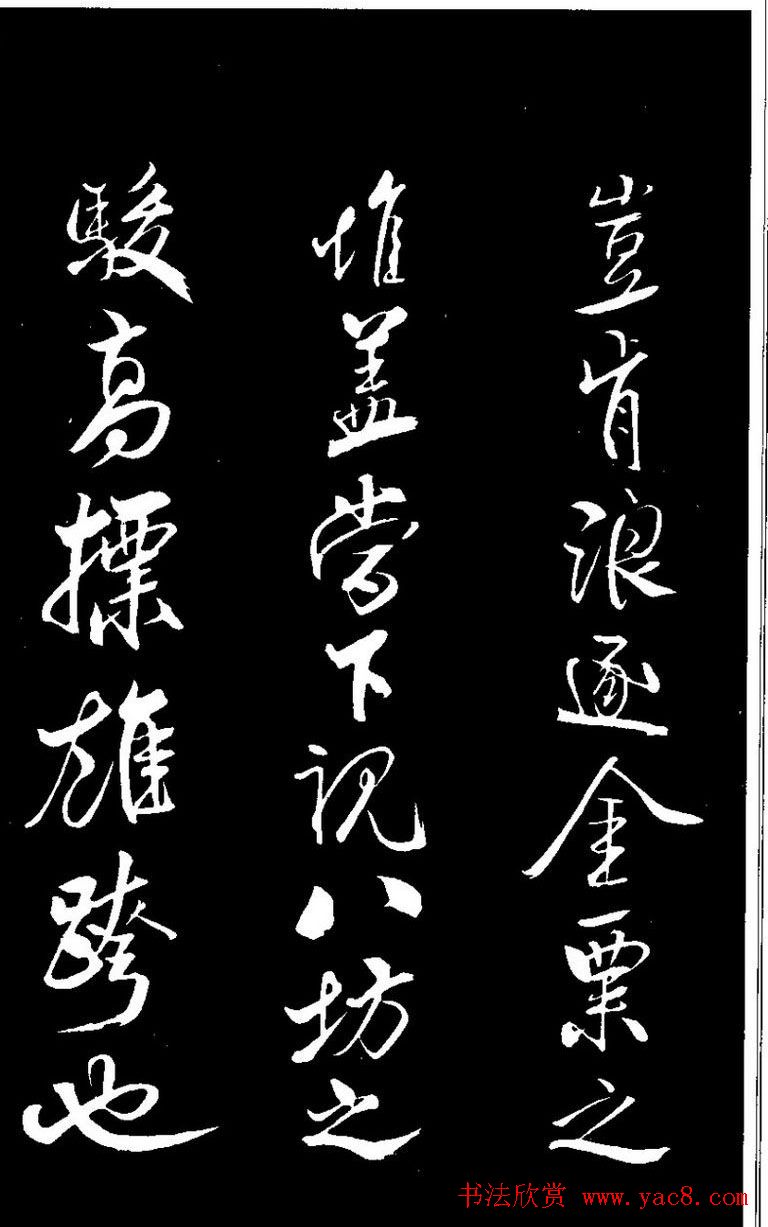 豈肯浪逐金粟之
堆盖當下視八坊之
駿高標雄跨也
书法欣赏 www.yac8.com